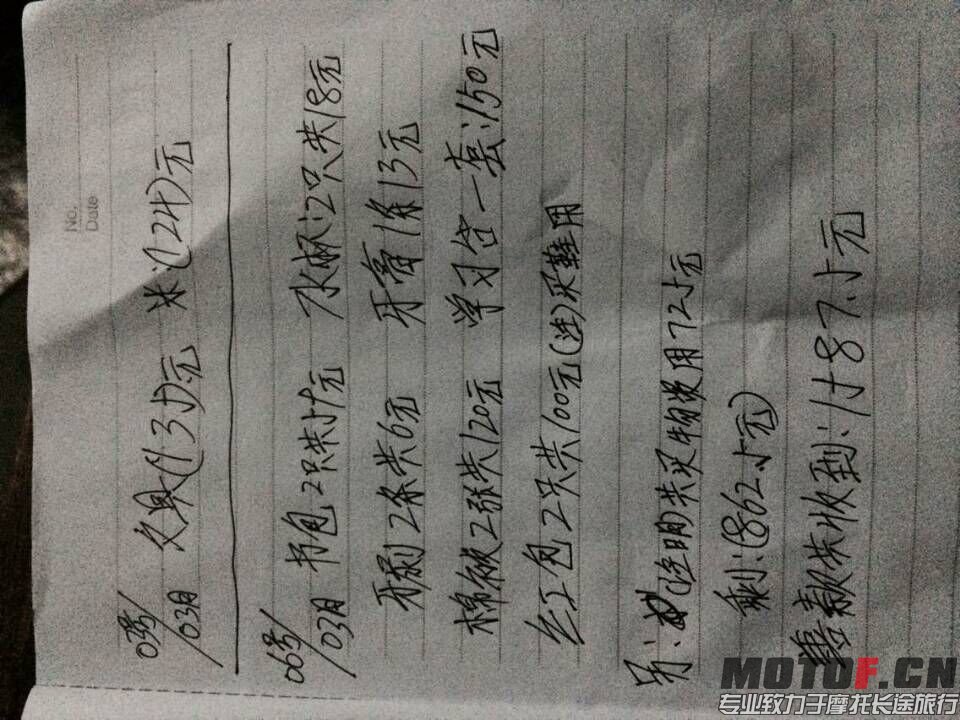 No.
Date
03号/03月 文具(135)元 米:(124)元
06号/03月 书包2只共59元 水杯:2只共18元
牙刷2条共6元 牙膏1条13元
棉被2张共120元 学习台一套:150元
红包2只共100元(注)买鞋用
另:(注明共买物资用725元
剩:(862.5元)
善款共收到:1587.5元
MOTOF.CN
专业致力于摩托长途旅行